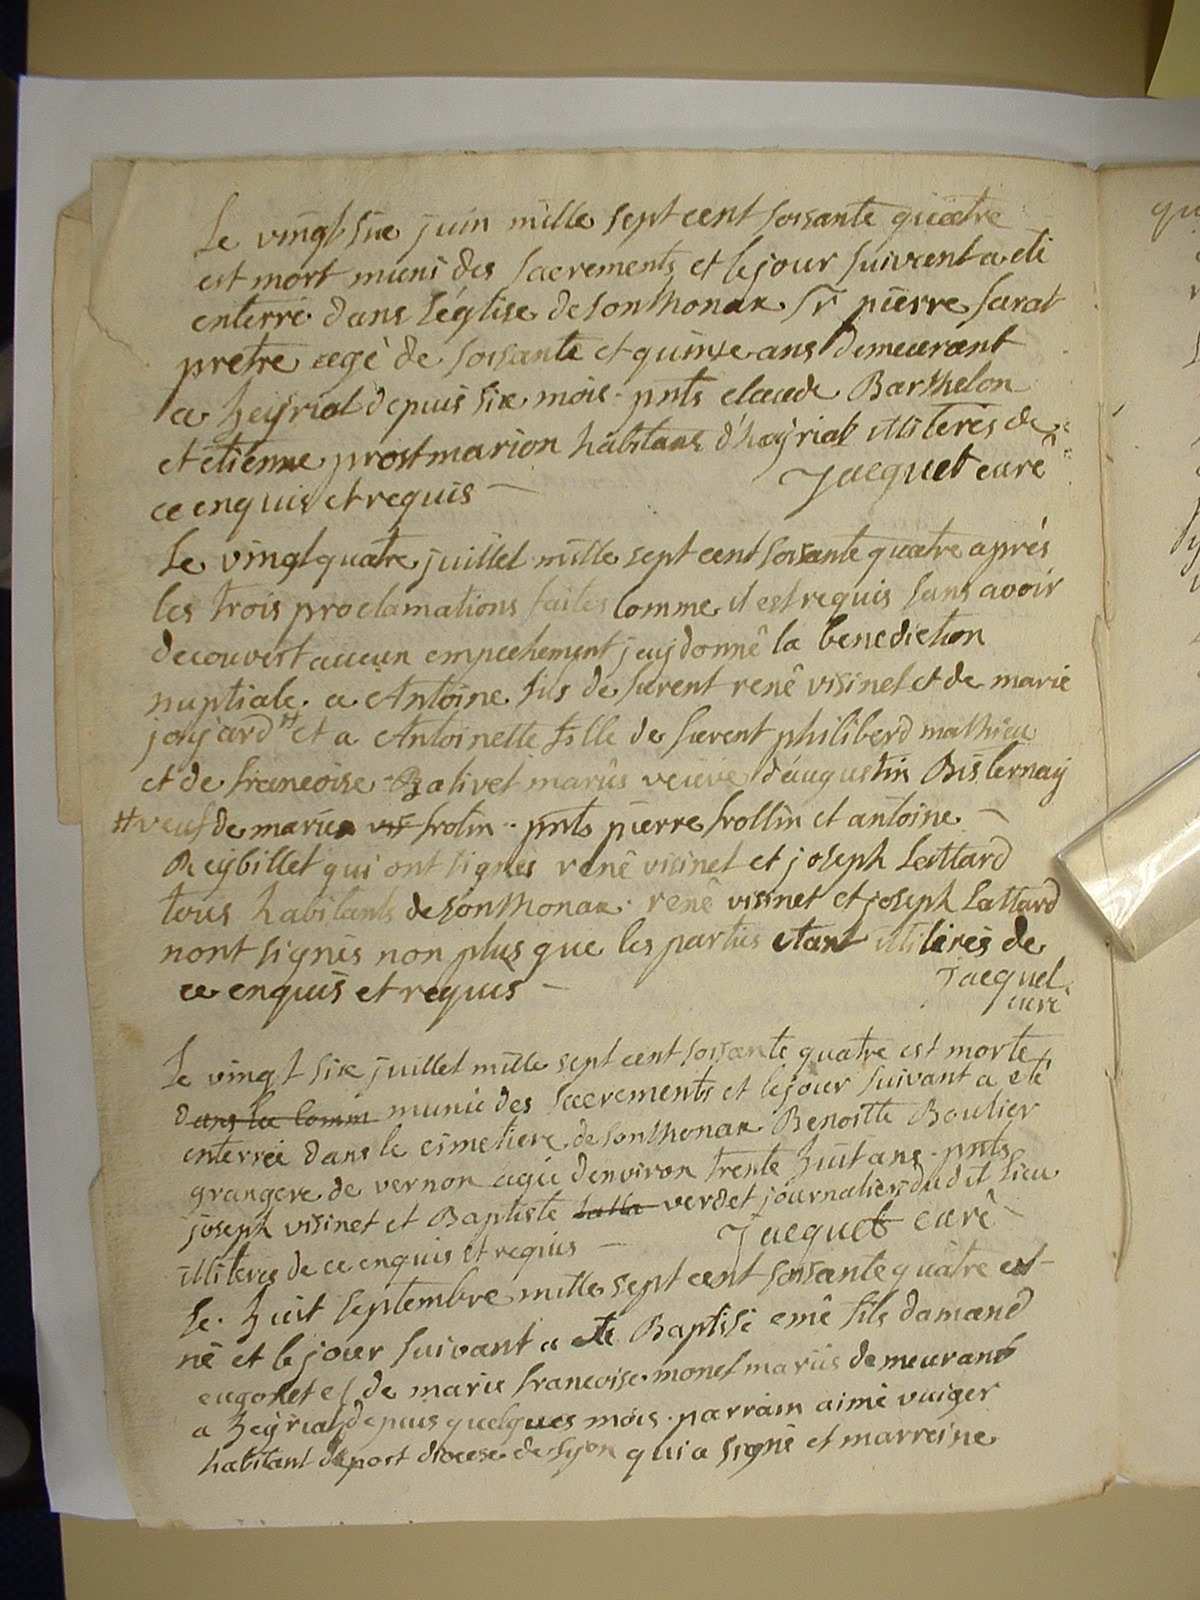 Le vingt six juin mille sept cent soisante quatre
est mort muni des sacrements et le jour suivent a eté
enterré dans l'église de sonthonax Sr pierre farat
pretre agé de soisante et quinze ans demeurant
a heyriat depuis six mois. pnts claude Barthelon
et etienne prost marion habitans d'hayriat illiterés de
ce enquis et requis Jacquet curé
Le vingt quatre juillet mille sept cent soisante quatre aprés
les trois proclamations faites comme il est requis sans avoir
decouvert aucun empechement j'ay donné la benediction
nuptiale a Antoine fils de furent rené visinet et de marie
joyard # et a Antoinette fille de furent philiberd mathieu
et de francoise Balivet mariés veuve d'augustin Bisternay
# veuf de marie frolin. pnts pierre frollin et antoine
Reybillet qui ont signés rené visinet et joseph Lattard
tous habitants de sonthonax. rené visinet et joseph Lattard
nont signés non plus que les parties etant illiterés de
ce enquis et requis Jacquet
curé
Le vingt six juillet mille sept cent soisante quatre est morte
dans la comm munie des sacrements et le jour suivant a eté
enterrée dans le cimetiere de sonthonax Benoitte Boulier
grangere de vernon agée d'environ trente huit ans. pnts
joseph visinet et Baptiste Latta verdet journalier dudit lieu
illiterés de ce enquis et requis Jacquet curé
Le huit septembre mille sept cent soisante quatre est
né et le jour suivant a eté Baptisé emé fils damand
eugonet et de marie francoise monet mariés demeurant
a heyriat depuis quelques mois. parrain aimé vuiger
habitant de port diocese de lyon qui a signé et marreine